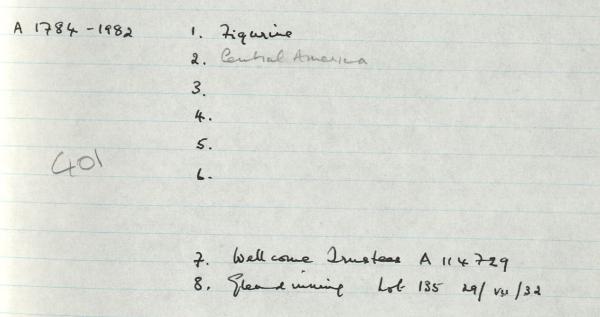 A 1784-1982 1. Figurine
2. Central America
3.
4.
401
5.
6.
7. Wellcome Trustees A 114729
8. Glendining Lot 135 29/vii/32